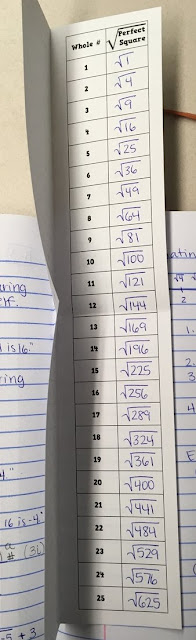 Whole # √Perfect Square
1 √1
2 √4
3 √9
4 √16
5 √25
6 √36
7 √49
8 √64
9 √81
10 √100
11 √121
12 √144
13 √169
14 √196
15 √225
16 √256
17 √289
18 √324
19 √361
20 √400
21 √441
22 √484
23 √529
24 √576
25 √625
uring
elf.
is 16."
ring
4"
16 is -4"
# (36)
-5 + 3
atin
2
1.
2.
3.
4
E